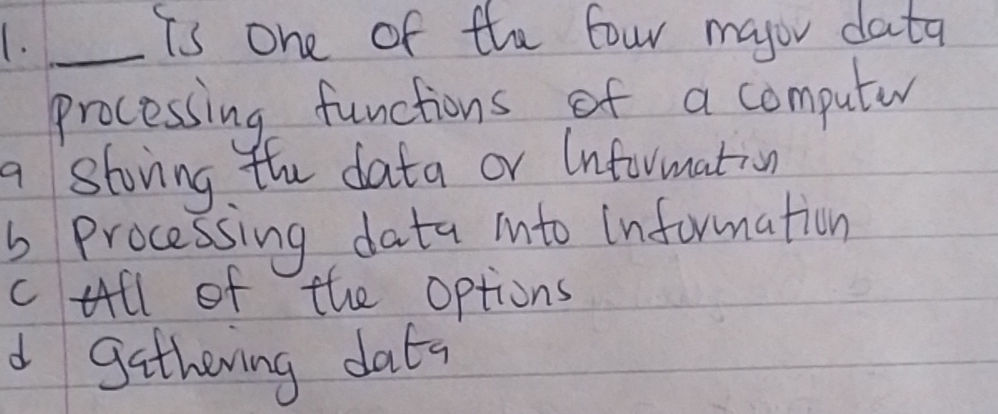 1. ___ is one of the four major data
processing functions of a computer
a storing the data or information
b processing data into information
c All of the options
d gathering data